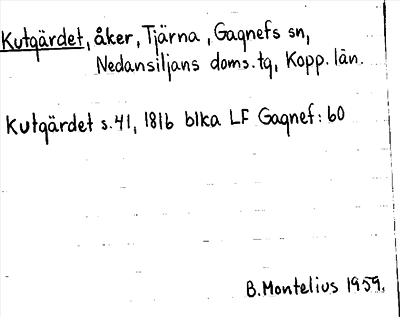 Kutgärdet, åker, Tjärna, Gagnefs sn,
Nedansiljans doms.tg, Kopp. län.
Kutgärdet s.41, 1816 blka LF Gagnef: 60
B. Montelius 1959.